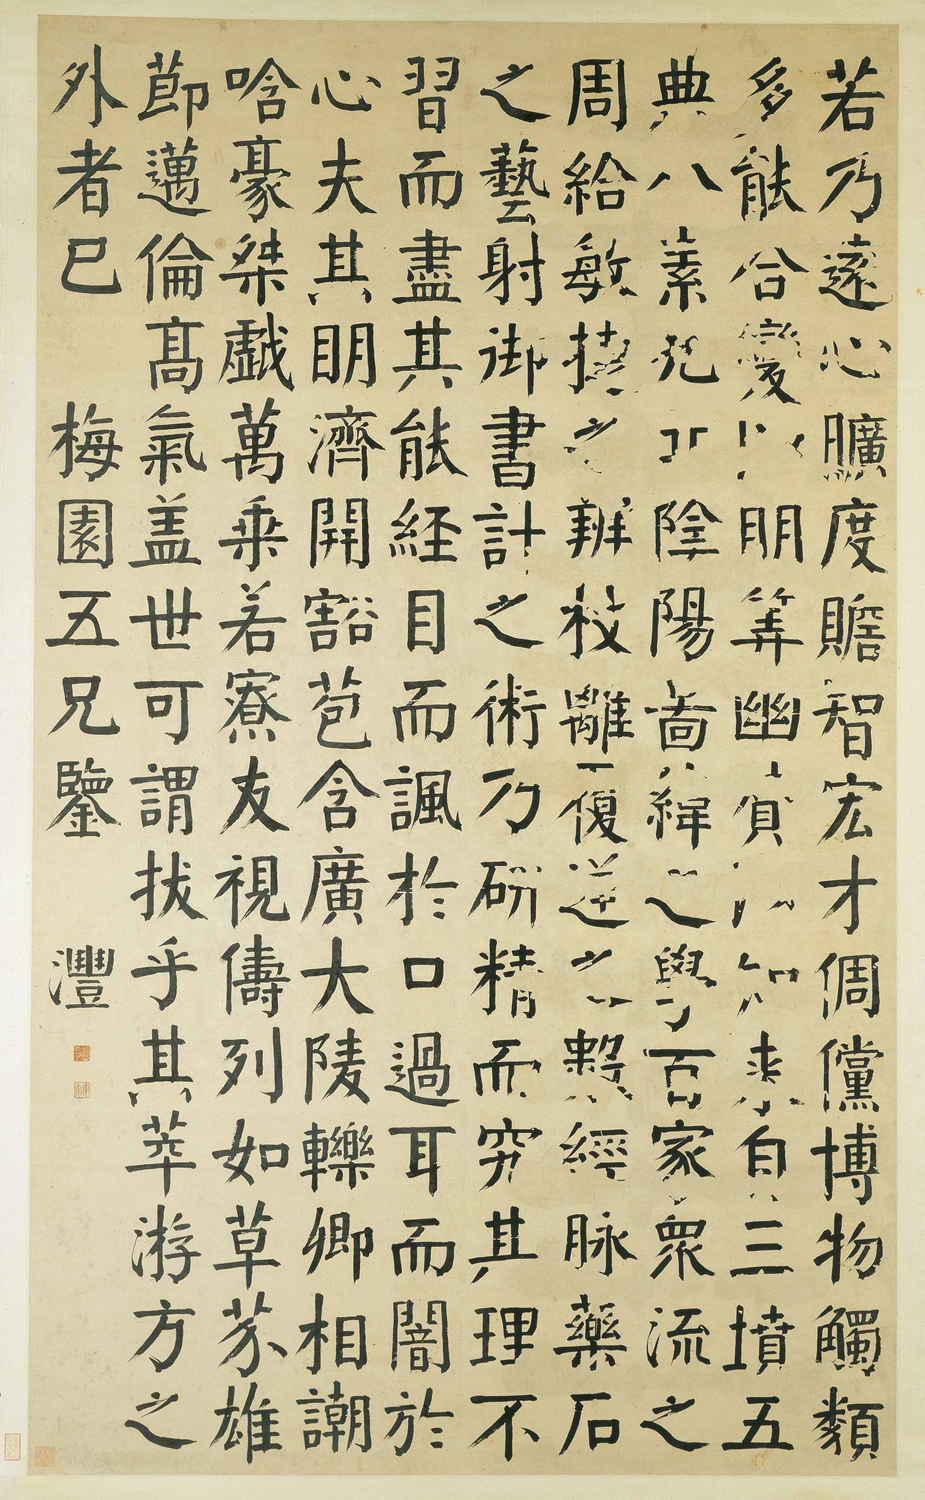 若乃遠心曠度贍智宏才倜儻博物觸類
多能合變以明筭幽贊以知來自三墳五
典八素九丘陰陽啚緯之學百家衆流之
周給敏捷之辨枝離覆逆之數經脉藥石
之藝射御書計之術乃研精而究其理不
習而盡其能経目而諷於口過耳而闇於
心夫其明濟開豁苞含廣大陵轢卿相謿
唅豪桀戯萬乗若寮友視儔列如草芥雄
節邁倫髙氣盖世可謂拔乎其萃游方之
外者已 梅園五兄鑒 灃